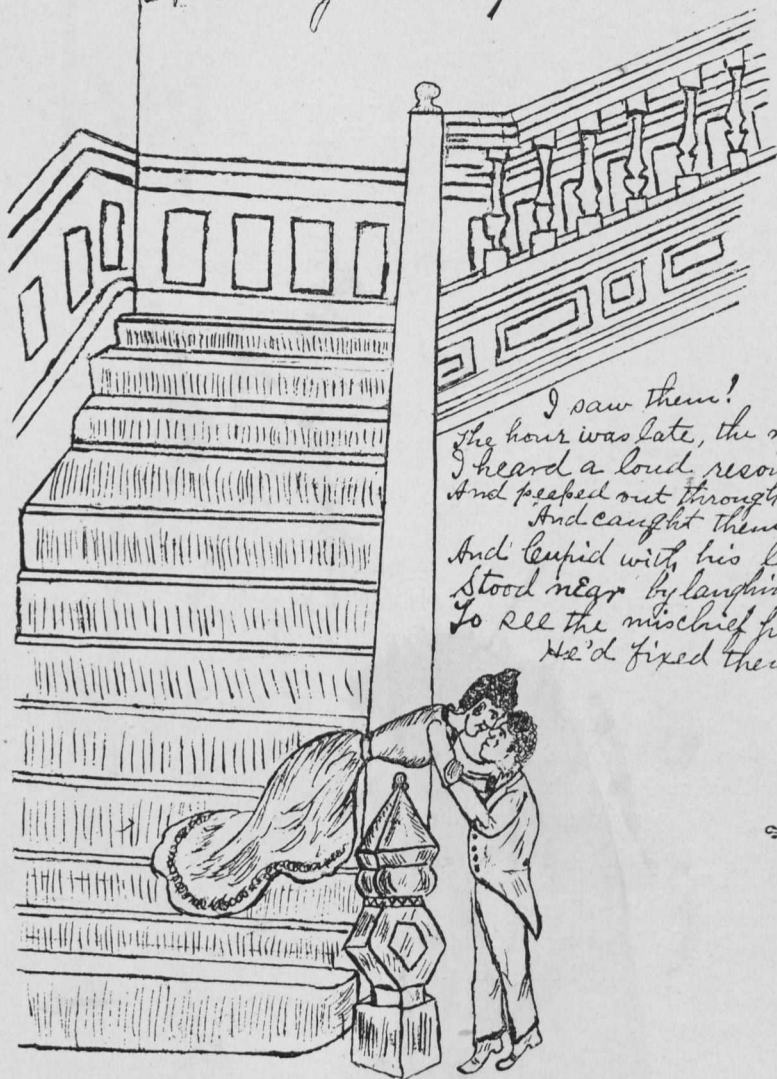 I saw them!
The hour was late, the
I heard a loud
And peeped out through
And caught them
And Cupid with his
Stood near by
To see the mischief
He'd fixed